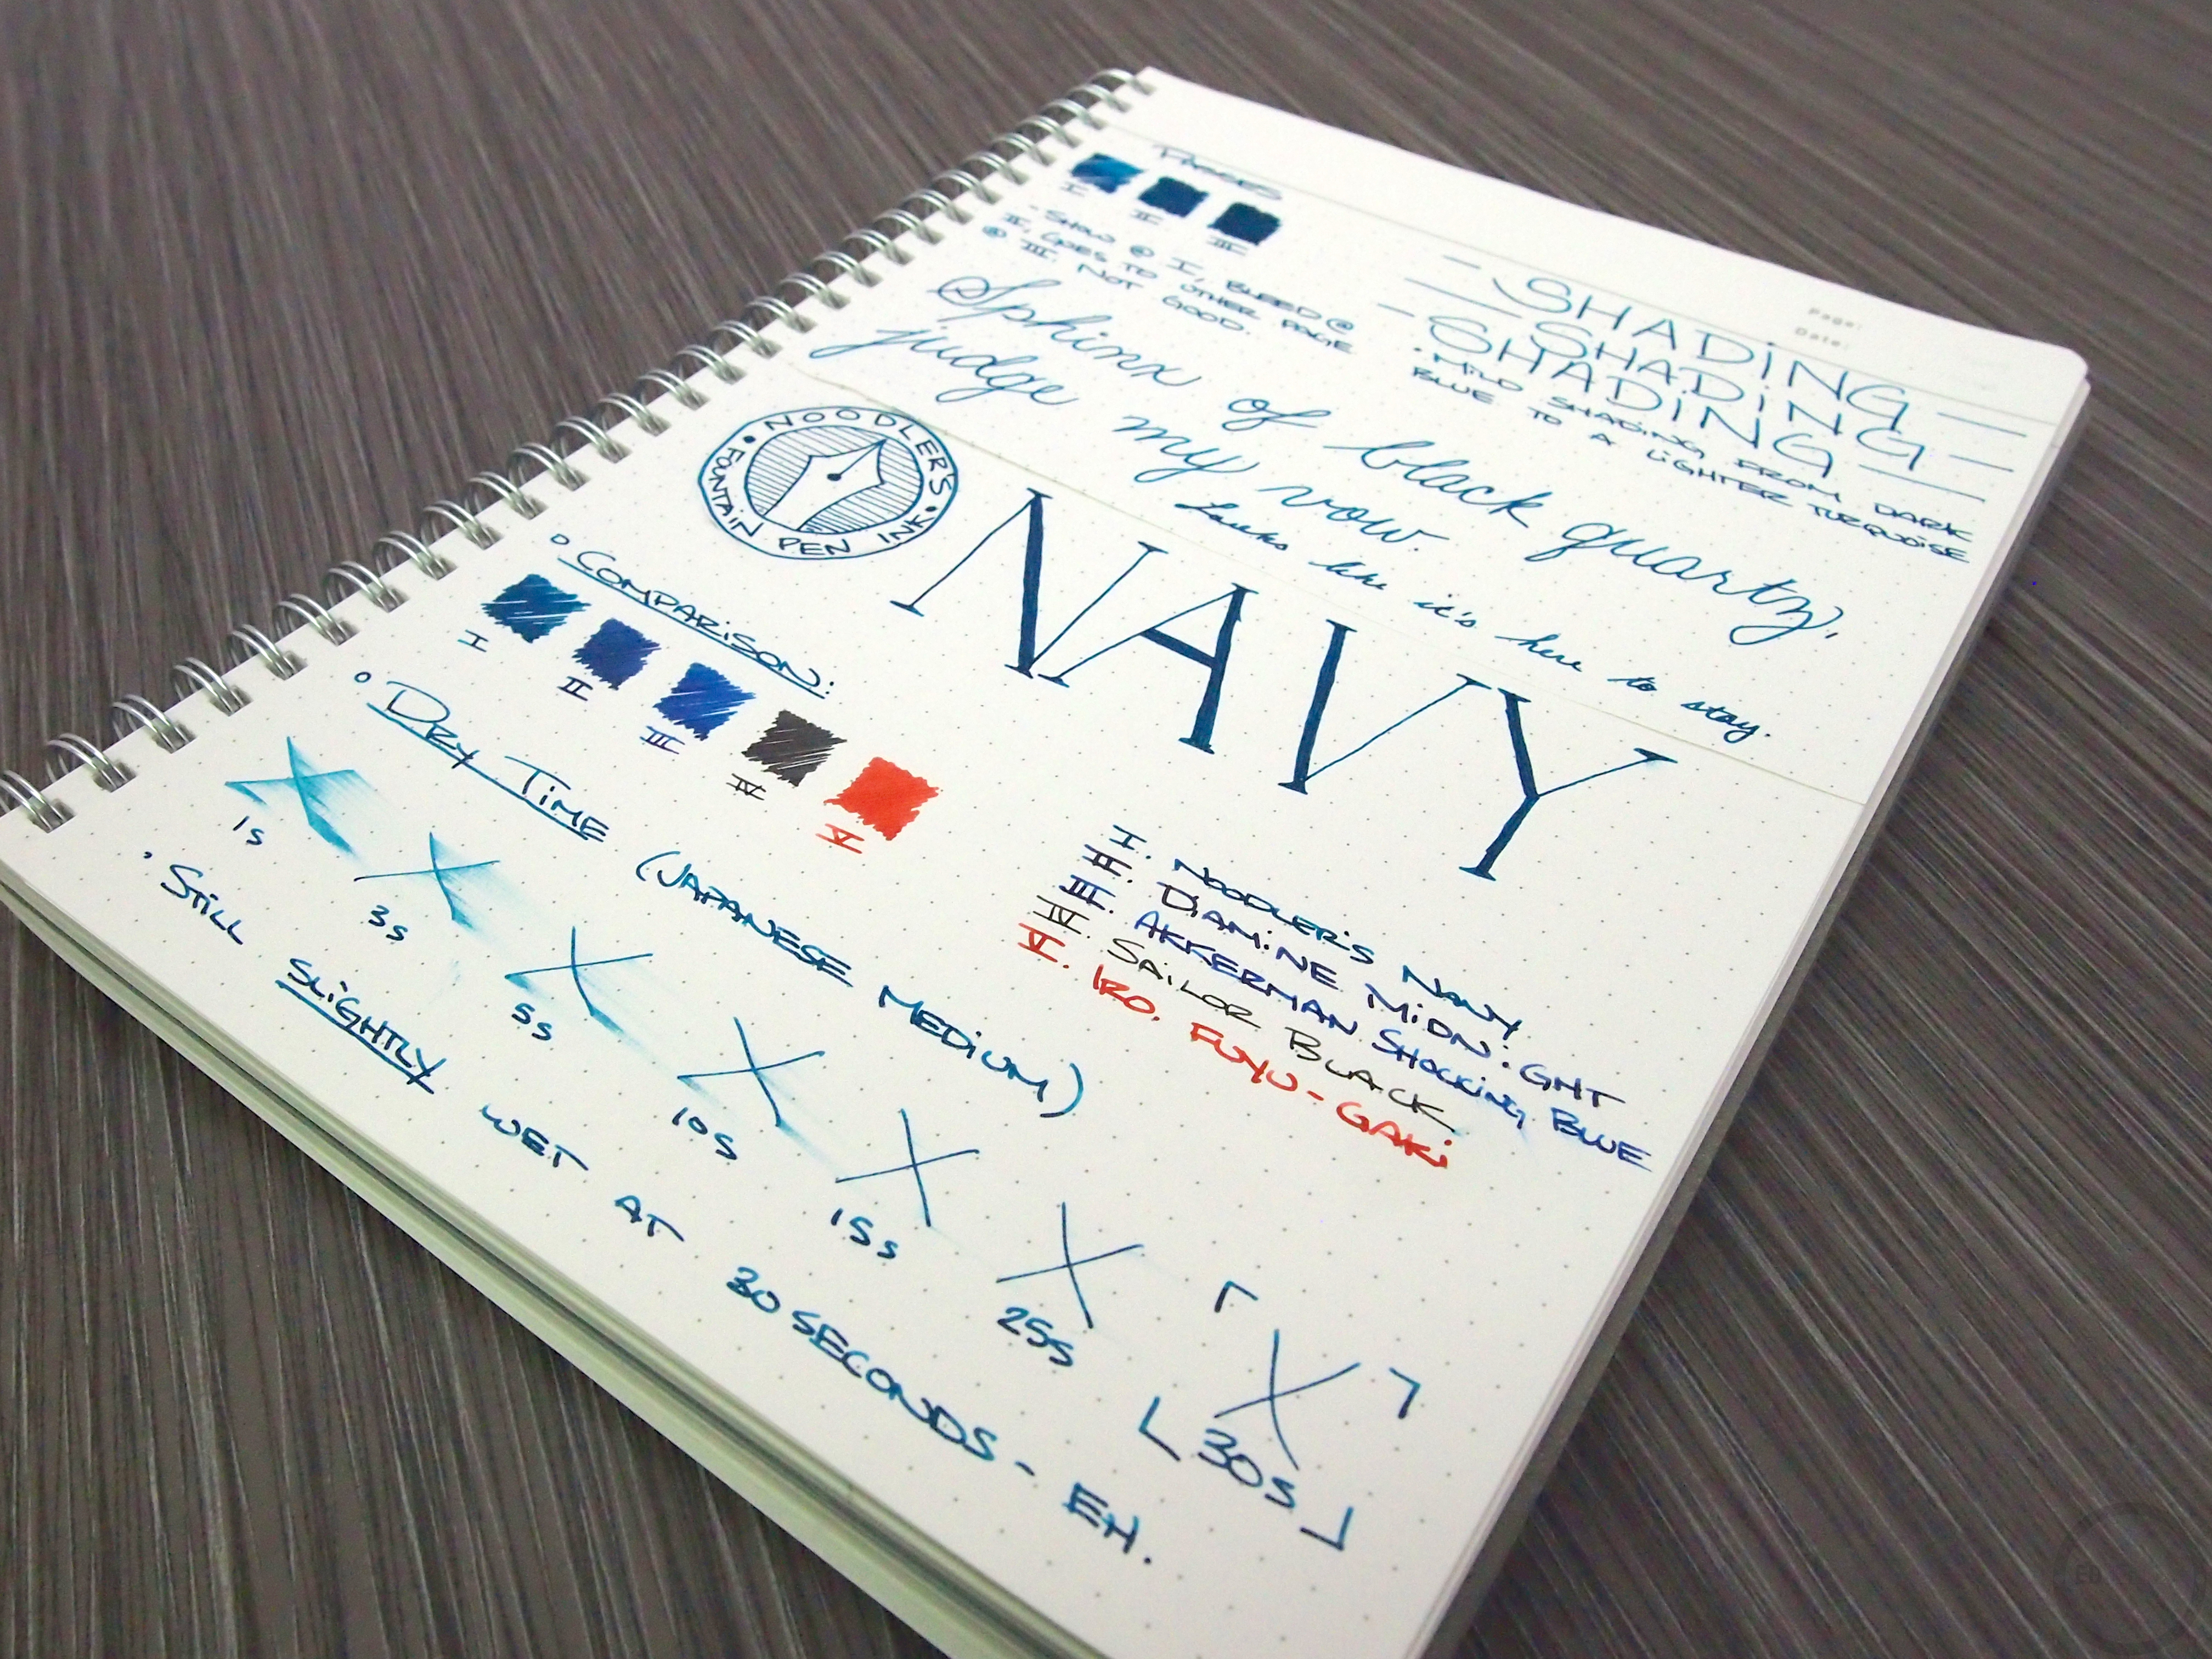 Passes
I
II
III
- Show @ I, Bleed @
II, Goes to other page
@ III. Not good.
Page:
Date:
- SHADiNG -
- SHADiNG -
- SHADiNG -
· Mild shading from dark
blue to a lighter turquoise
Sphinx of black quartz,
judge my vow.
Looks like it's here to stay.
NOODLER'S
· FOUNTAiN PEN INK ·
NAVY
° COMPARiSON:
I
II
III
IV
V
I. NOODLER'S NAVY
II. DiAMiNE MiDNiGHT
III. AKKERMAN SHOCKiNG BLUE
IV. SAiLOR BLACK
V. IRO. FUYU-GAKi
° DRY TiME (JAPANESE MEDiUM)
1s
3s
5s
10s
15s
25s
30s
· STiLL SLiGHTLY WET AT 30 SECONDS - EH.